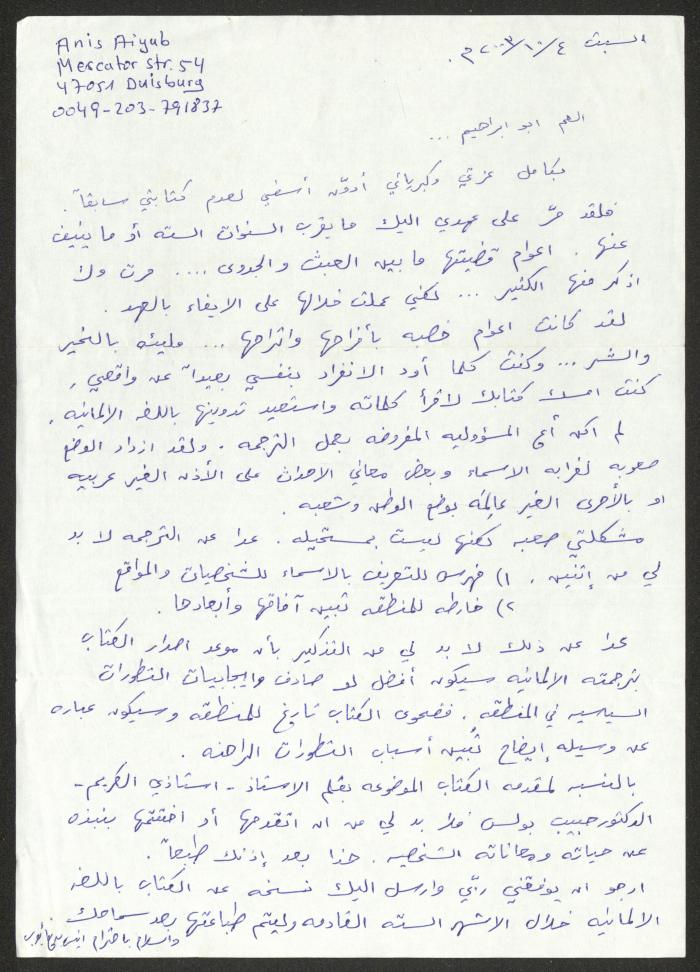 Anis Aiyub
Mercator Str. 54
47051 Duisburg
0049-203-791837
السبت ٤/١٠/٢٠٠٣م.
العم ابو ابراهيم ...
بكامل عزتي وكبريائي أدوّن أسفي لعدم كتابتي سابقاً.
فلقد مرّ على عهدي اليك ما يقرب السنوات السته أو ما ينيف
عنها. اعوام قضيتها ما بين العبث والجدوى .... مرت ولا
اذكر منها الكثير ... لكني عملت خلالها على الايفاء بالعهد.
لقد كانت اعوام خصبه بأفراحها واتراحها ... مليئه بالخير
والشر ... وكنت كلما أود الانفراد بنفسي بعيداً عن واقعي,
كنت امسك كتابك لاقرأ كلماته واستعيد تدوينها باللغه الالمانيه.
لم اكن أعي المسؤوليه المفروضه بحمل الترجمه. ولقد ازداد الوضع
صعوبه لغرابه الاسماء وبعض معاني الاحداث على الأذن الغير عربيه
او بالأحرى الغير عالِمَة بوضع الوطن وشعبه.
مشكلتي صعبه لكنها ليست بمستحيله. عدا عن الترجمه لا بد
لي من إثنين. ١) فهرس للتعريف بالاسماء للشخصيات والمواقع
٢) خارطه للمنطقه تبين آفاقها وأبعادها.
عدا عن ذلك لا بد لي من التذكير بأن موعد اصدار الكتاب
بترجمته الالمانيه سيكون أفضل لو صادف وايجابيات التطورات
السياسيه في المنطقه. ففحوى الكتاب تاريخ للمنطقه وسيكون عباره
عن وسيله إيضاح تُبين أسباب التطورات الراهنه.
بالنسبه لمقدمه الكتاب الموضوعه بقلم الاستاذ - استاذي الكريم -
الدكتور حبيب بولس فلا بد لي من ان اتقدمها أو اختتمها بنبذه
عن حياته ومعاناته الشخصيه. هذا بعد إذنك طبعاً.
ارجو ان يوفقني ربّي وارسل اليك نسخه عن الكتاب باللغه
الالمانيه خلال الاشهر السته القادمه وليتم طباعتها بعد سماحك
والسلام باحترام انيس أيوب